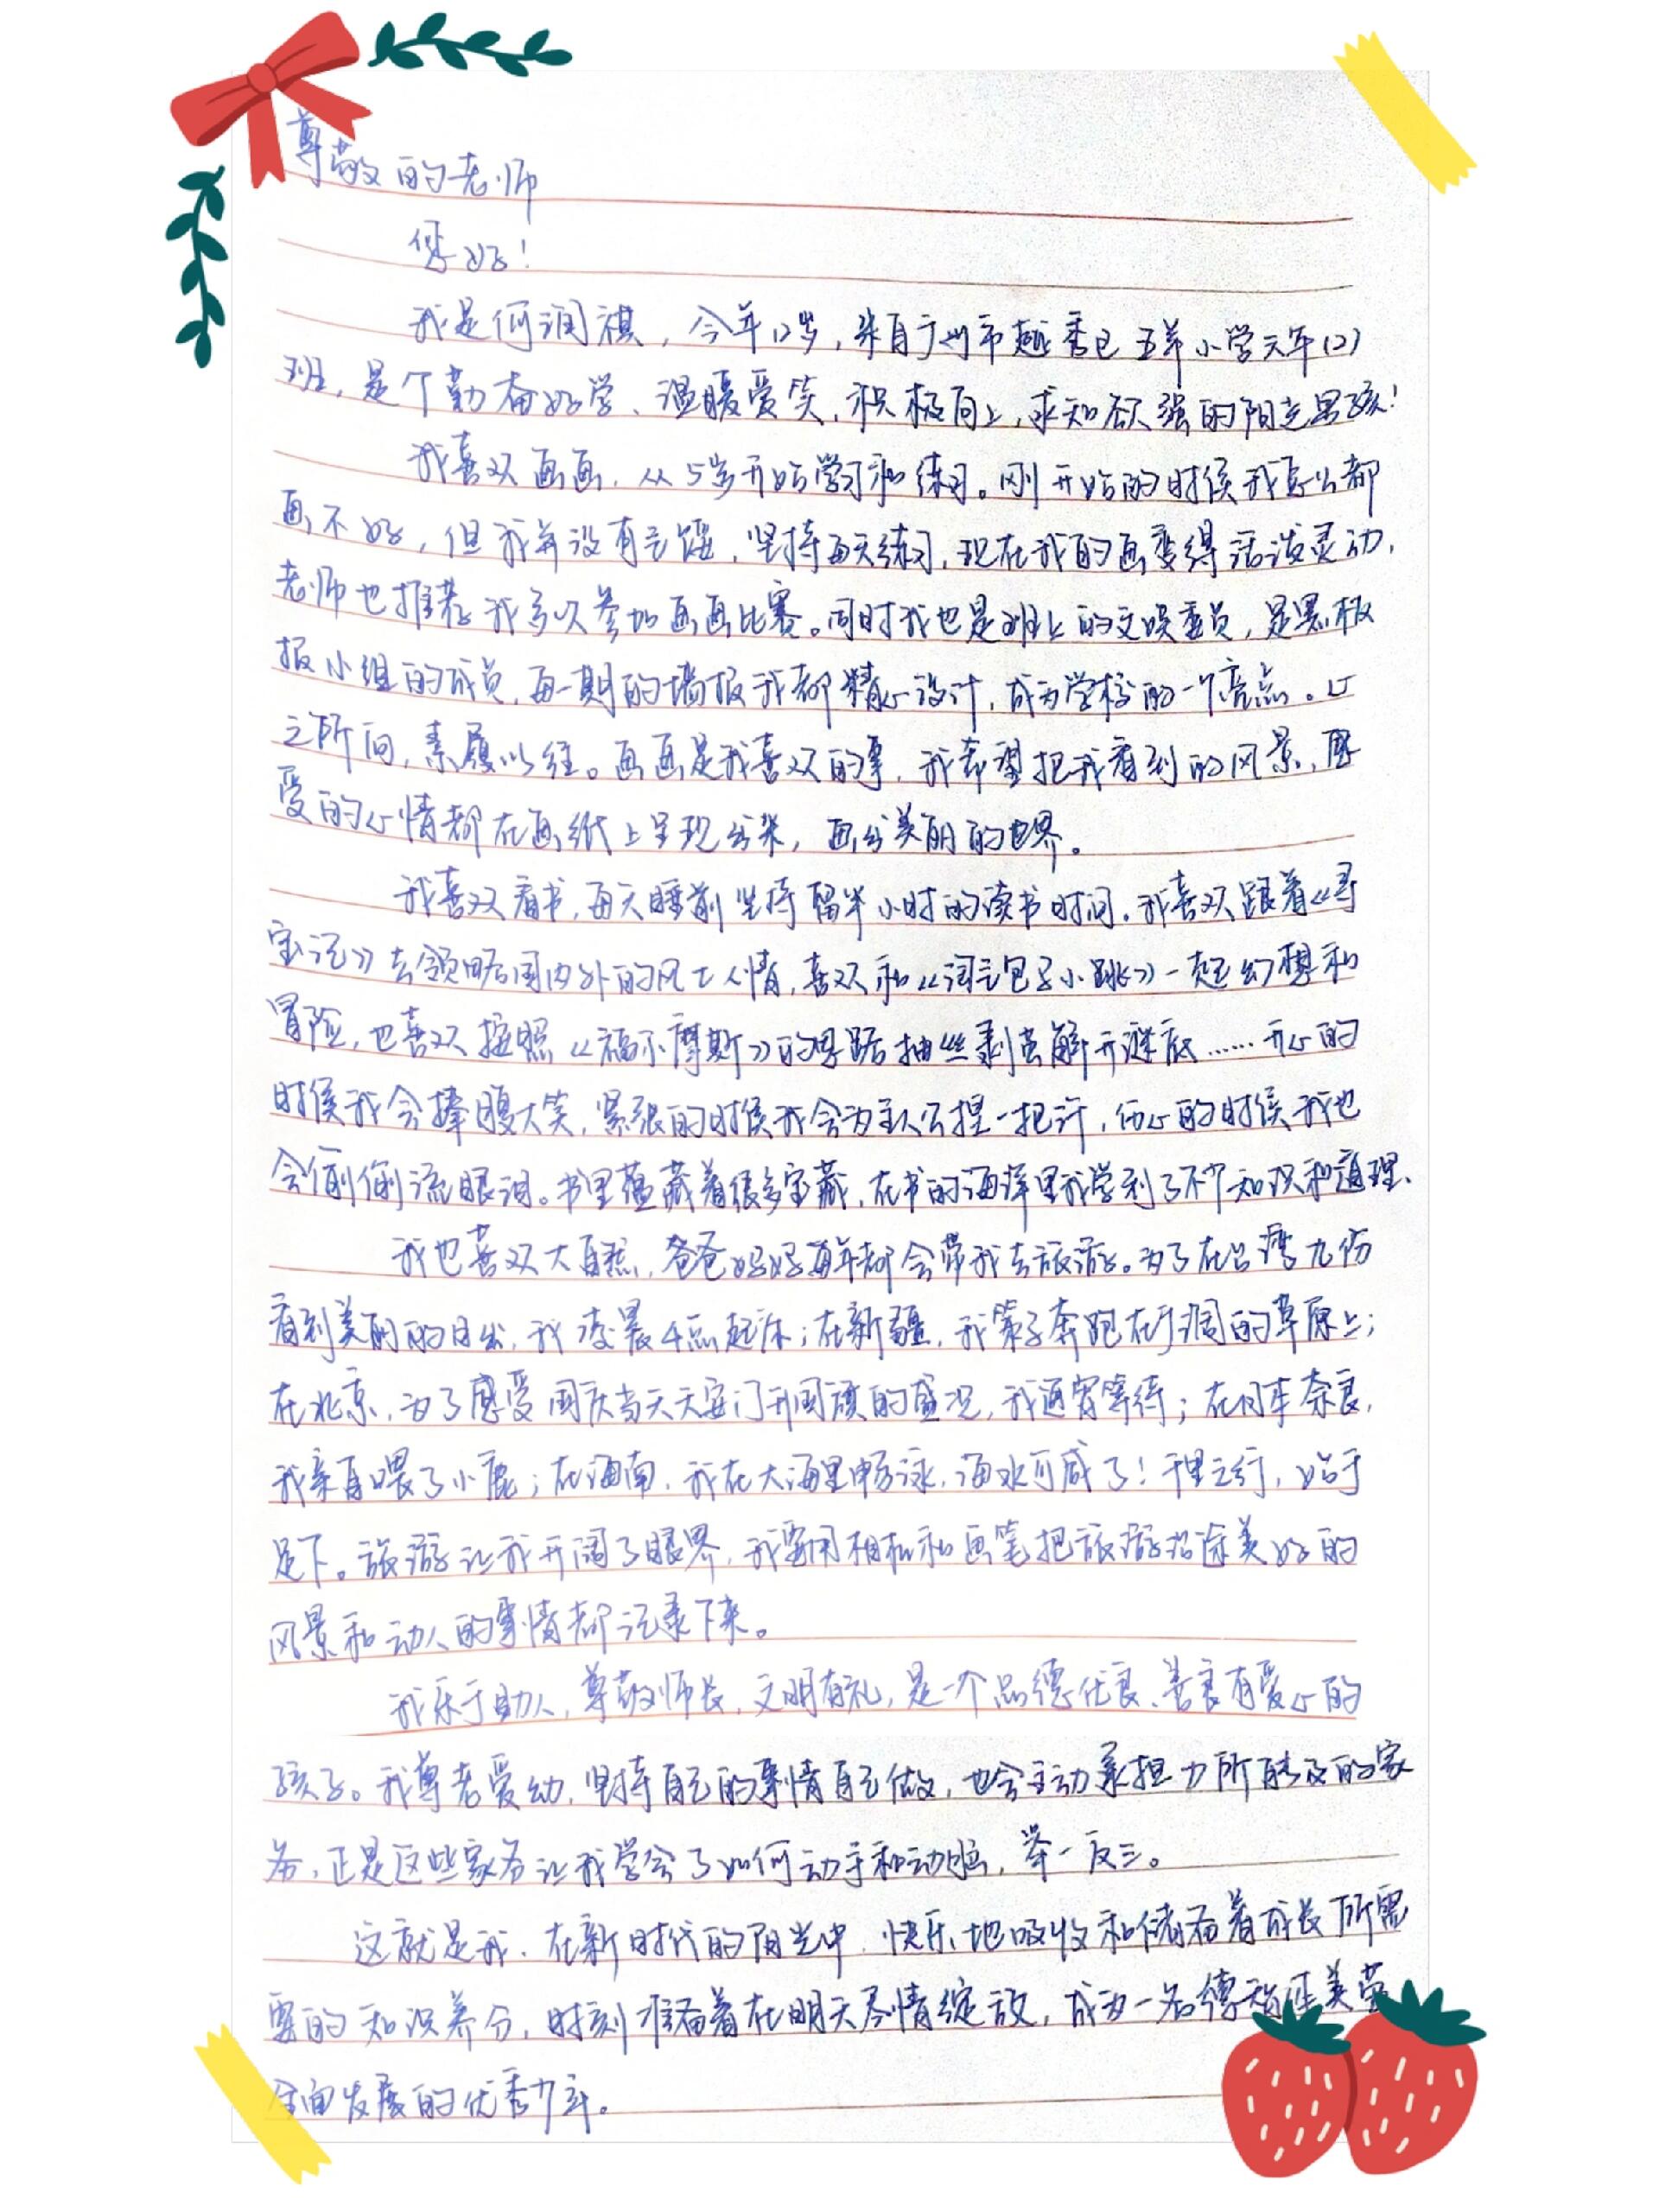 尊敬的老师
您好！
我是何润祺，今年12岁，来自广州市越秀区五羊小学六年(2)
班，是个勤奋好学、温暖爱笑，积极向上，求知欲强的阳光男孩！
我喜欢画画，从5岁开始学习和练习。刚开始的时候我怎么都
画不好，但我并没有气馁，坚持每天练习，现在我的画变得活泼灵动，
老师也推荐我多次参加画画比赛。同时我也是班上的文娱委员，是黑板
报小组的成员，每一期的墙报我都精心设计，成为学校的一个亮点。心
之所向，素履以往。画画是我喜欢的事，我希望把我看到的风景，感
受的心情都在画纸上呈现出来，画出美丽的世界。
我喜欢看书，每天睡前坚持留半小时的读书时间。我喜欢跟着《寻
宝记》去领略国内外的风土人情，喜欢和《淘气包马小跳》一起幻想和
冒险，也喜欢按照《福尔摩斯》的思路抽丝剥茧解开谜底……开心的
时候我会捧腹大笑，紧张的时候我会为主人公捏一把汗，伤心的时候我也
会偷偷流眼泪。书里蕴藏着很多宝藏，在书的海洋里我学到了不少知识和道理。
我也喜欢大自然，爸爸妈妈每年都会带我去旅游。为了在台湾九份
看到美丽的日出，我凌晨4点起床；在新疆，我策马奔跑在广阔的草原上；
在北京，为了感受国庆当天天安门升国旗的盛况，我通宵等待；在日本奈良，
我亲自喂了小鹿；在海南，我在大海里畅泳，海水可咸了！千里之行，始于
足下。旅游让我开阔了眼界，我要用相机和画笔把旅游沿途美好的
风景和动人的事情都记录下来。
我乐于助人，尊敬师长，文明有礼，是一个品德优良、善良有爱心的
孩子。我尊老爱幼，坚持自己的事情自己做，也会主动承担力所能及的家
务，正是这些家务让我学会了如何动手和动脑，举一反三。
这就是我，在新时代的阳光中，快乐地吸收和储备着成长所需
要的知识养分，时刻准备着在明天尽情绽放，成为一名德智体美劳
全面发展的优秀少年。